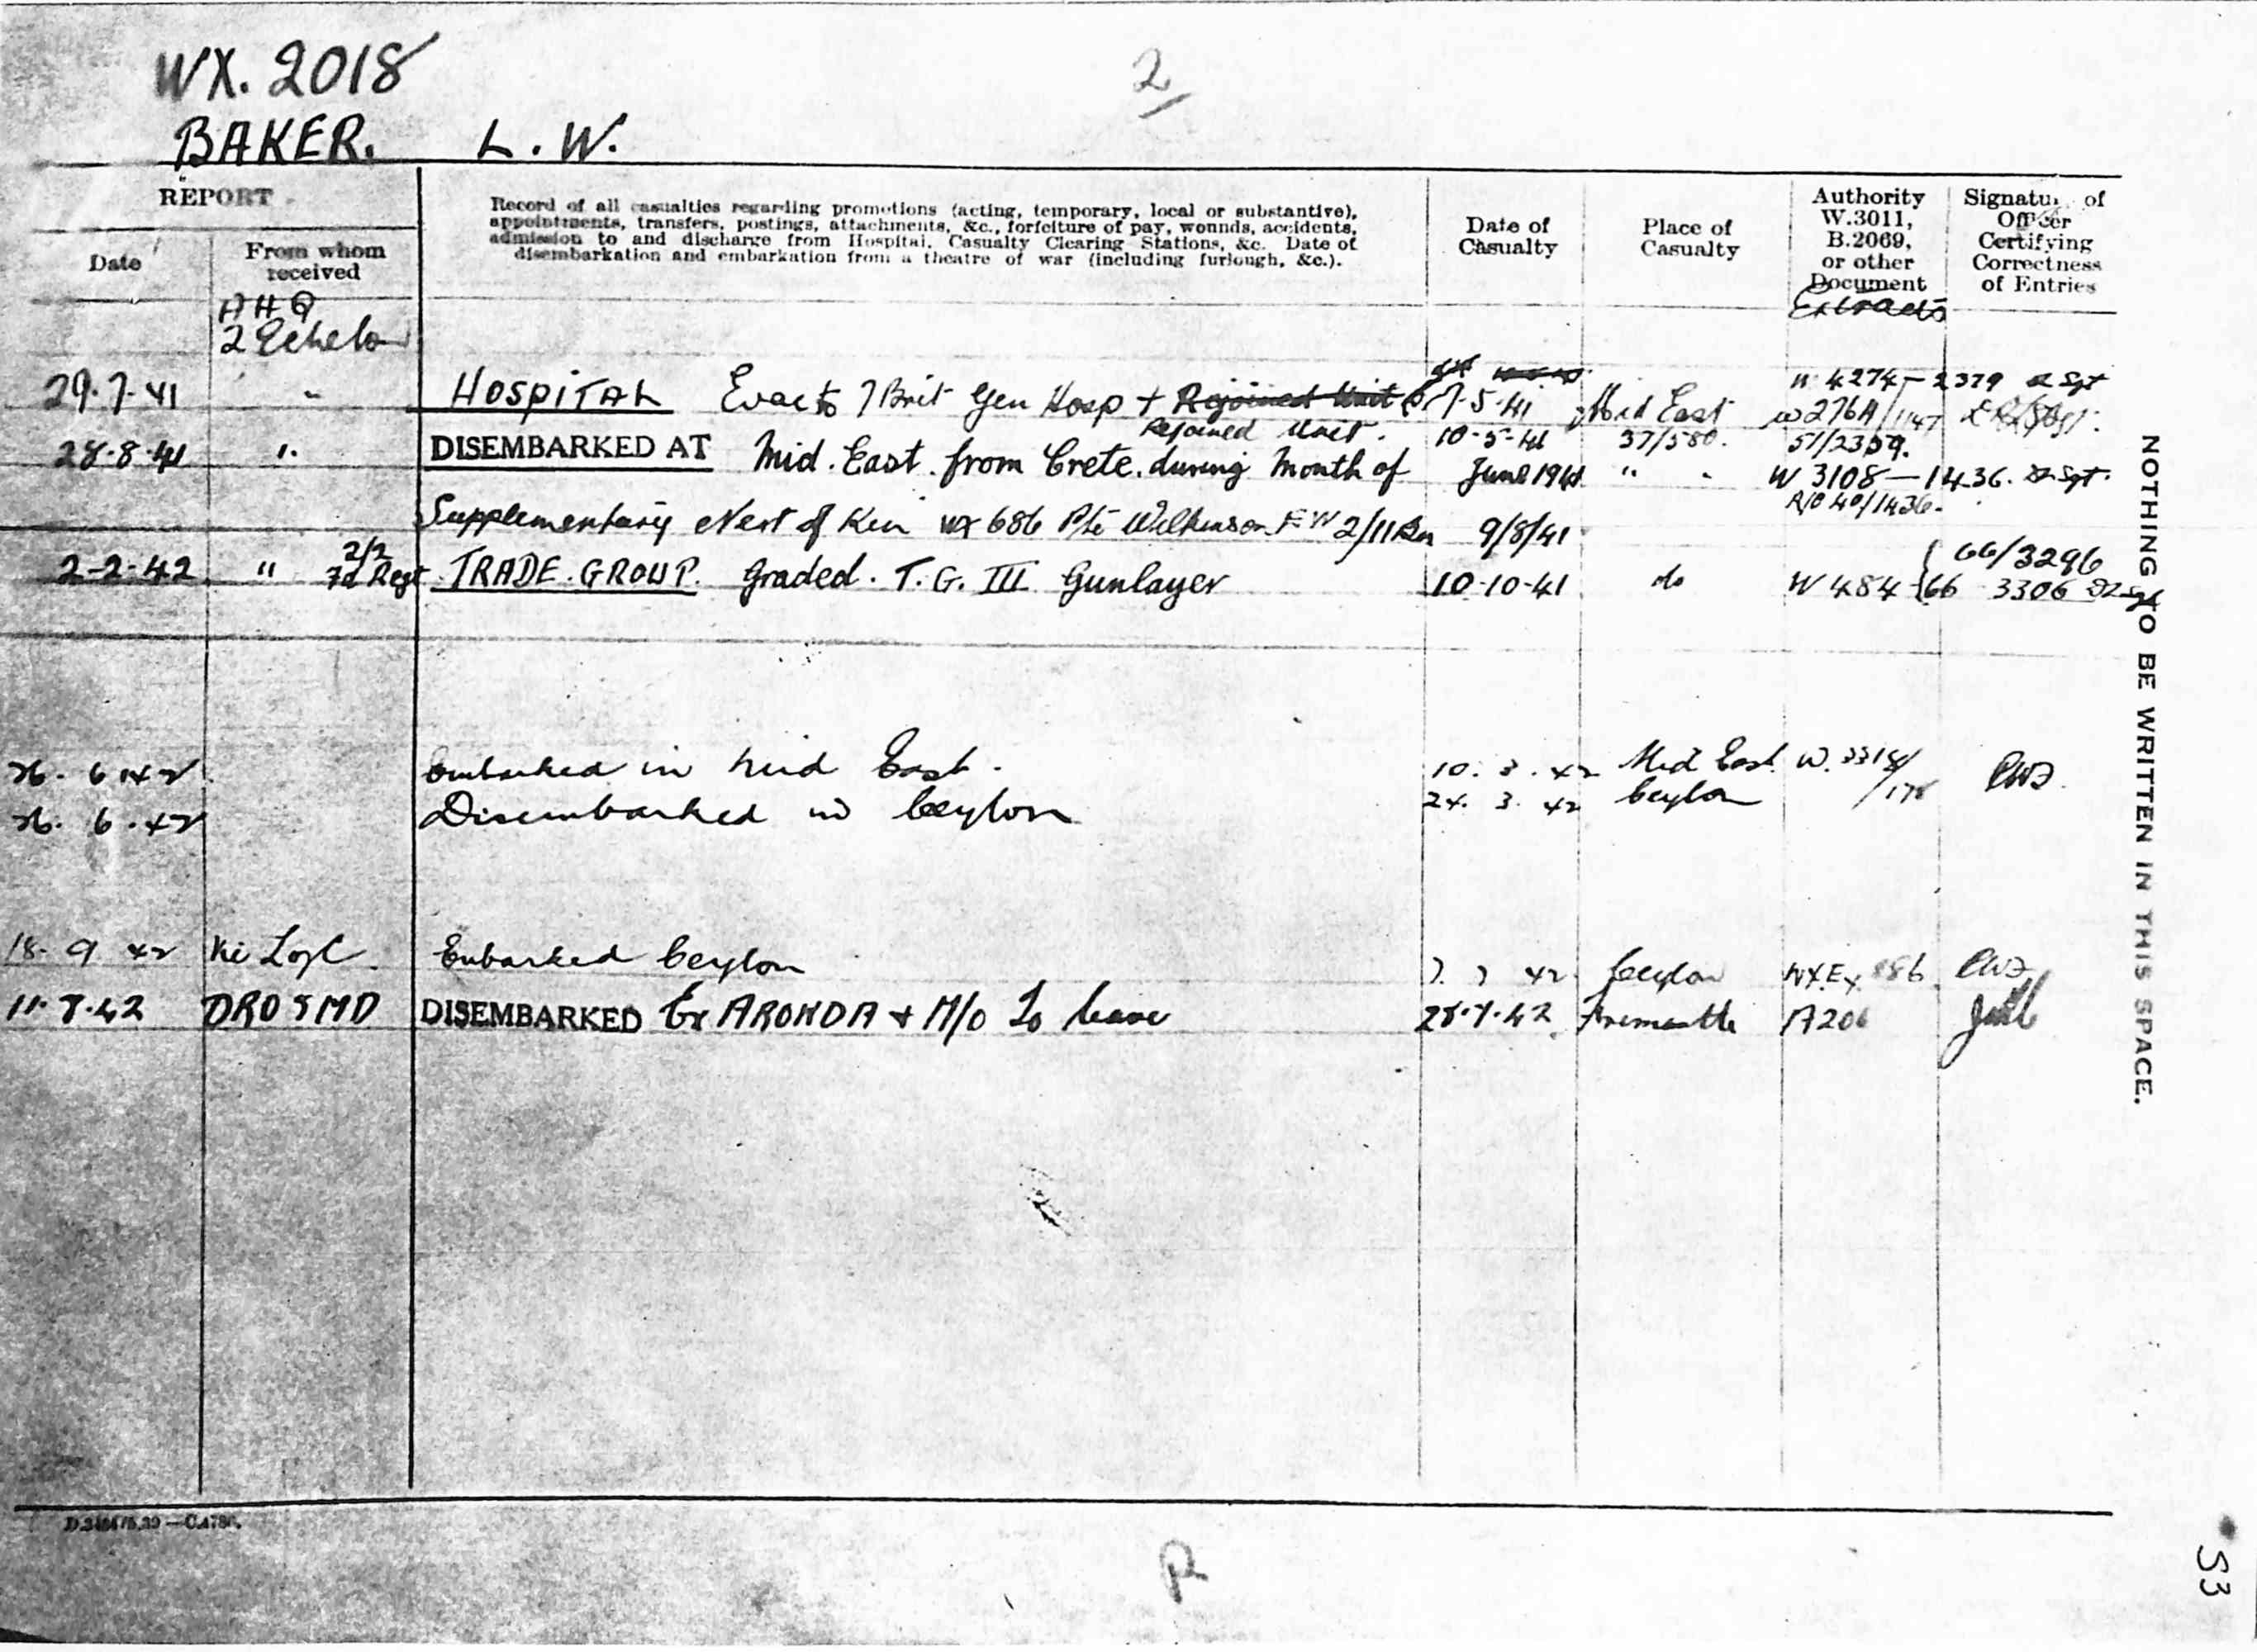 WX. 2018
2
BAKER. L. W.
REPORT
Date
From whom received
Record of all casualties regarding promotions (acting, temporary, local or substantive),
appointments, transfers, postings, attachments, &c., forfeiture of pay, wounds, accidents,
admission to and discharge from Hospital, Casualty Clearing Stations, &c. Date of
disembarkation and embarkation from a theatre of war (including furlough, &c.).
Date of Casualty
Place of Casualty
Authority W.3011, B.2069, or other Document
Signature of Officer Certifying Correctness of Entries
AHQ
2 Echelon
Extracts
W 4274-2379 Sgt
29.7.41 " HOSPITAL Evac to 7 Brit Gen Hosp + Rejoined Unit 7.5.41 Mid East W276A/1147
Rejoined Unit. 10-5-41 37/580. 51/2359.
28.8.41 " DISEMBARKED AT Mid. East. from Crete. during Month of June 1941 " " W 3108-1436. Sgt.
R/O 40/1436.
Supplementary Next of Kin WX 686 Pte Wilkinson F W 2/11 Bn 9/8/41
66/3296
2-2-42 " 2/2 Fd Regt TRADE. GROUP. Graded. T. G. III Gunlayer 10-10-41 do W 484 66 3306
26. 6. 42 Embarked in Mid East. 10. 3. 42 Mid East W. 3318/178
26. 6. 42 Disembarked in Ceylon 24. 3. 42 Ceylon
18. 9 42 Embarked Ceylon 42 Ceylon WX.Ex. 886
11.8.42 DRO 5MD DISEMBARKED Ex ARONDA + M/O To leave 28.7.42 Fremantle A206
NOTHING TO BE WRITTEN IN THIS SPACE.
R
53